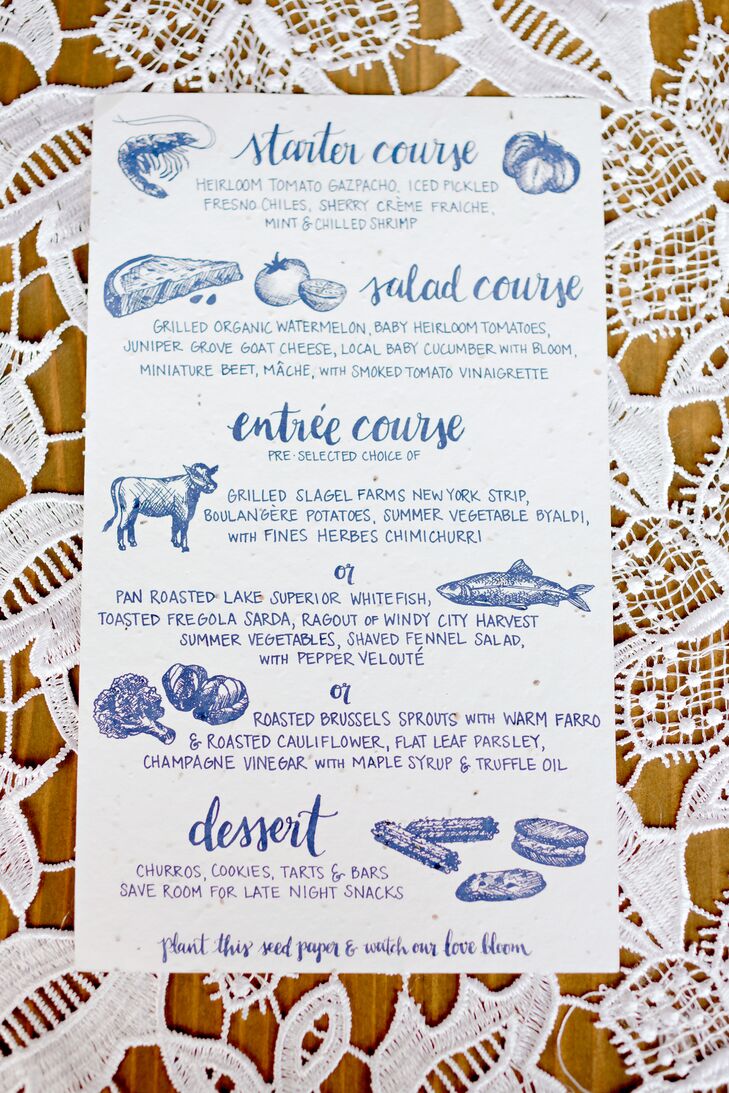 starter course
HEIRLOOM TOMATO GAZPACHO, ICED PICKLED
FRESNO CHILES, SHERRY CRÈME FRAICHE,
MINT & CHILLED SHRIMP
salad course
GRILLED ORGANIC WATERMELON, BABY HEIRLOOM TOMATOES,
JUNIPER GROVE GOAT CHEESE, LOCAL BABY CUCUMBER WITH BLOOM,
MINIATURE BEET, MÂCHE, WITH SMOKED TOMATO VINAIGRETTE
entrée course
PRE-SELECTED CHOICE OF
GRILLED SLAGEL FARMS NEW YORK STRIP,
BOULANGÈRE POTATOES, SUMMER VEGETABLE BYALDI,
WITH FINES HERBES CHIMICHURRI
or
PAN ROASTED LAKE SUPERIOR WHITEFISH,
TOASTED FREGOLA SARDA, RAGOUT OF WINDY CITY HARVEST
SUMMER VEGETABLES, SHAVED FENNEL SALAD,
WITH PEPPER VELOUTÉ
or
ROASTED BRUSSELS SPROUTS WITH WARM FARRO
& ROASTED CAULIFLOWER, FLAT LEAF PARSLEY,
CHAMPAGNE VINEGAR WITH MAPLE SYRUP & TRUFFLE OIL
dessert
CHURROS, COOKIES, TARTS & BARS
SAVE ROOM FOR LATE NIGHT SNACKS
plant this seed paper & watch our love bloom